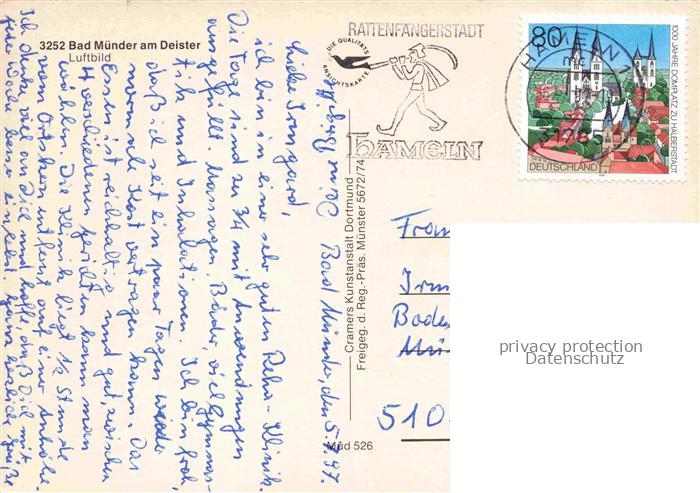 3252 Bad Münder am Deister
Luftbild
RATTENFÄNGERSTADT
DIE QUALITÄTS
ANSICHTSKARTE
HAMELN
80
1000 JAHRE DOMPLATZ ZU HALBERSTADT
DEUTSCHLAND
HAMELN 1
mc
Bad Münder, den 5.7.97.
Liebe Irmgard,
ich bin in einer sehr guten Reha-Klinik.
Die Tage sind zu 3/4 mit Anwendungen
ausgefüllt Massagen, Bäder, viel Gymnas-
tik und Inhalationen. Ich bin froh,
daß ich seit ein paar Tagen wieder
normale Kost vertragen kann. Das
Essen ist reichhaltig und gut, zwischen
4 verschiedenen Gerichten kann man
wählen. Die Klinik liegt 1/2 Stunde
vom Ortskern entfernt auf einer Anhöhe.
Ich denke viel an Dich und hoffe, daß Du Dich mit
jeder Woche besser einlebst. Ganz herzlich grüße
Cramers Kunstanstalt Dortmund
Freigeg. d. Reg.-Präs. Münster 5672/74
Müd 526
Frau
Irm
Bade
510
privacy protection
Datenschutz